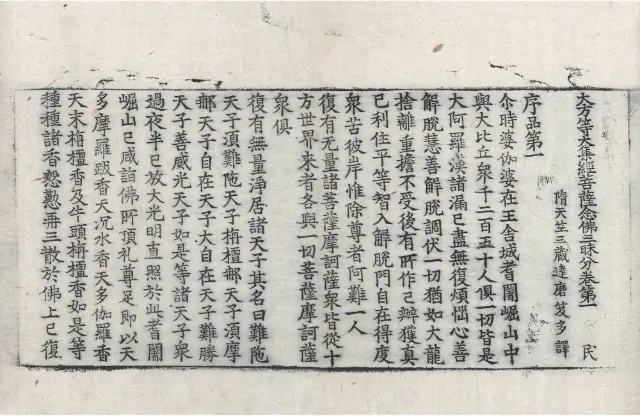 大方等大集經菩薩念佛三昧分卷第一 民
隋天竺三藏達磨笈多譯
序品第一
尒時婆伽婆在王舍城耆闍崛山中
與大比丘衆千二百五十人俱一切皆是
大阿羅漢諸漏已盡無復煩惱心善
解脫慧善解脫調伏一切猶如大龍
捨離重擔不受後有所作已辦獲真
己利住平等智入解脫門自在得度
衆苦彼岸惟除尊者阿難一人
復有無量諸菩薩摩訶薩衆皆從十
方世界来者各與一切菩薩摩訶薩
衆俱
復有無量淨居諸天子其名曰難陁
天子湏難陁天子栴檀郁天子湏摩
郁天子自在天子大自在天子難勝
天子善威光天子如是等諸天子衆
過夜半已放大光明直照於此耆闍
崛山已咸詣佛所頂礼尊足即以天
多摩羅跋香天沉水香天多伽羅香
天末栴檀香及牛頭栴檀香如是等
種種諸香慇懃再三散於佛上已復